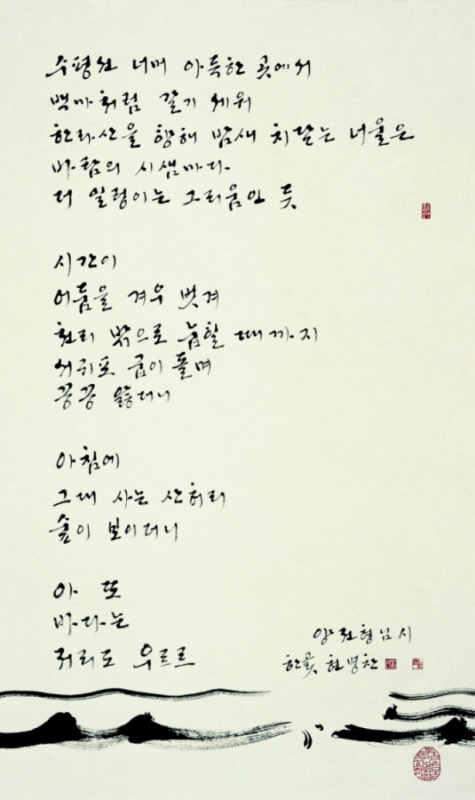 수평선 너머 아득한 곳에서
백마처럼 갈기 세워
한라산을 향해 밤새 치닫는 너울은
바람의 시샘마다
더 일렁이는 그리움인 듯
시간이
어둠을 겨우 벗겨
천리 밖으로 눕힐 때까지
서귀포 굽이 돌며
끙끙 앓더니
아침에
그대 사는 산허리
숲이 보이더니
아 또
바다는
저리도 우르르
양전형님 시
한곬 현병찬